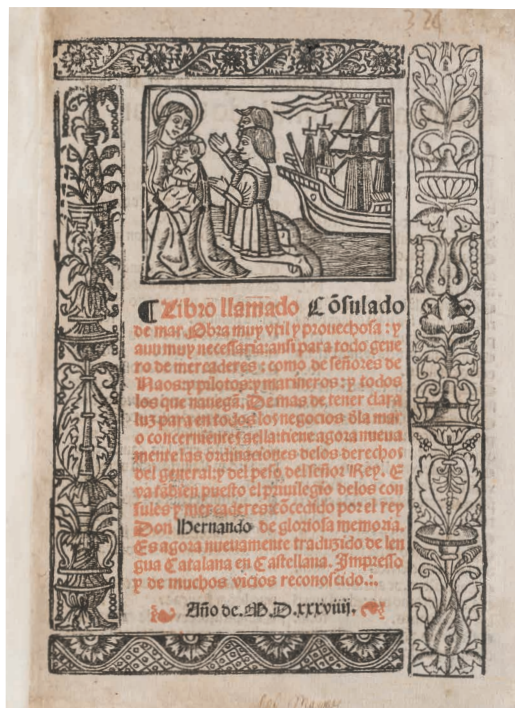 326
¶ Libro llamado Cōsulado
de mar. Obra muy vtil y prouechosa: y
aun muy necessaria: ansi para todo gene
ro de mercaderes: como de señores de
Naos: y pilotos: y marineros: y todos
los que nauegā. De mas de tener clara
luz para en todos los negocios d̄la mar
o concernientes a ella: tiene agora nueua
mente las ordinaciones delos derechos
del general: y del peso del señor Rey. E
va tābien puesto el priuilegio delos con
sules y mercaderes: cōcedido por el rey
Don Hernando de gloriosa memoria.
Es agora nueuamente traduzido de len
gua Catalana en Castellana. Impresso
y de muchos vicios reconoscido.:.
Año de. M. D. xxxviiij.